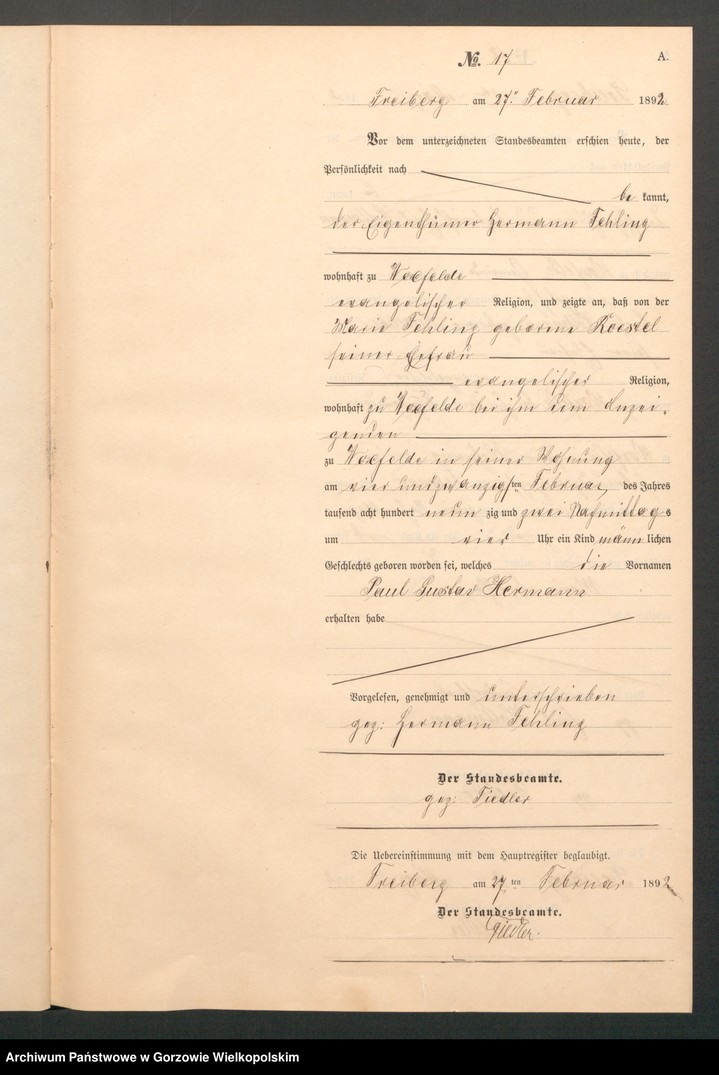 A.
No. 17
Freiberg am 27. Februar 1892
Vor dem unterzeichneten Standesbeamten erschien heute, der
Persönlichkeit nach
be kannt,
der Eigenthümer Hermann Fehling
wohnhaft zu Woxfelde
evangelischer Religion, und zeigte an, daß von der
Marie Fehling geborene Koestel
seiner Ehefrau
evangelischer Religion,
wohnhaft zu Woxfelde bei ihm dem Anzei-
genden
zu Woxfelde in seiner Wohnung
am vier und zwanzigsten Februar des Jahres
tausend acht hundert neun zig und zwei Nachmittags
um vier Uhr ein Kind männ lichen
Geschlechts geboren worden sei, welches die Vornamen
Paul Gustav Hermann
erhalten habe
Vorgelesen, genehmigt und unterschrieben
gez: Hermann Fehling
Der Standesbeamte.
gez: Fiedler
Die Uebereinstimmung mit dem Hauptregister beglaubigt.
Freiberg am 27. ten Februar 1892
Der Standesbeamte.
Fiedler.
Archiwum Państwowe w Gorzowie Wielkopolskim